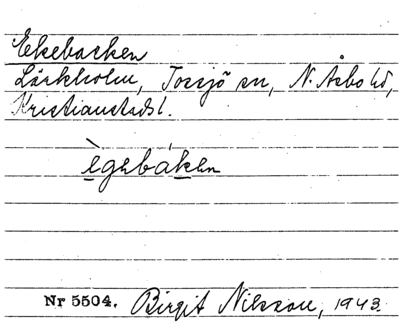 Ekebacken
Lärkholm, Tossjö sn, N. Åsbo hd,
Kristianstads l.
ègebáken
Nr 5504. Birgit Nilsson, 1943.